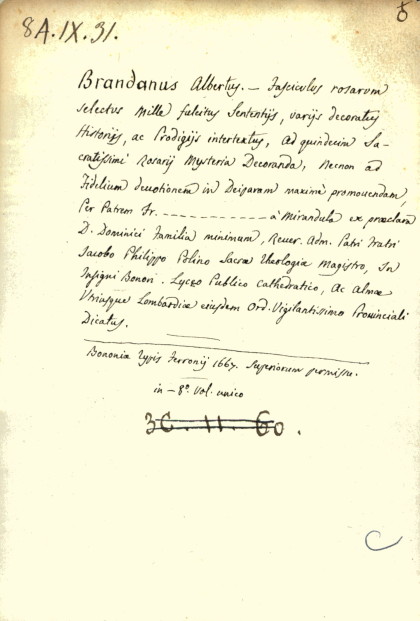 8A.IX.31.
Brandanus Albertus. – Fasciculus rosarum
selectus mille fulcitus Sententijs, varijs decoratus
Historijs, ac Prodigijs intertextus, ad quindecim Sa-
cratissimi Rosarij Mysteria Decoranda, Necnon ad
Fidelium devotionem in Deiparam maximè promovendam,
Per Patrem Fr. – – – – – – – – – – à Mirandula ex præclara
D. Dominici Familia minimum, Rever. Adm. Patri Fratri
Jacobo Philippo Polino Sacræ Theologiæ Magistro, In
Insigni Bonon. Lyceo Publico Cathedratico, Ac Almæ
Utriusque Lombardiæ eiusdem Ord. Vigilantissimo Provinciali
Dicatus.
Bononiæ Typis Ferronij 1667. Superiorum permissu.
in – 8º. Vol. unico
3C. 11. 60.